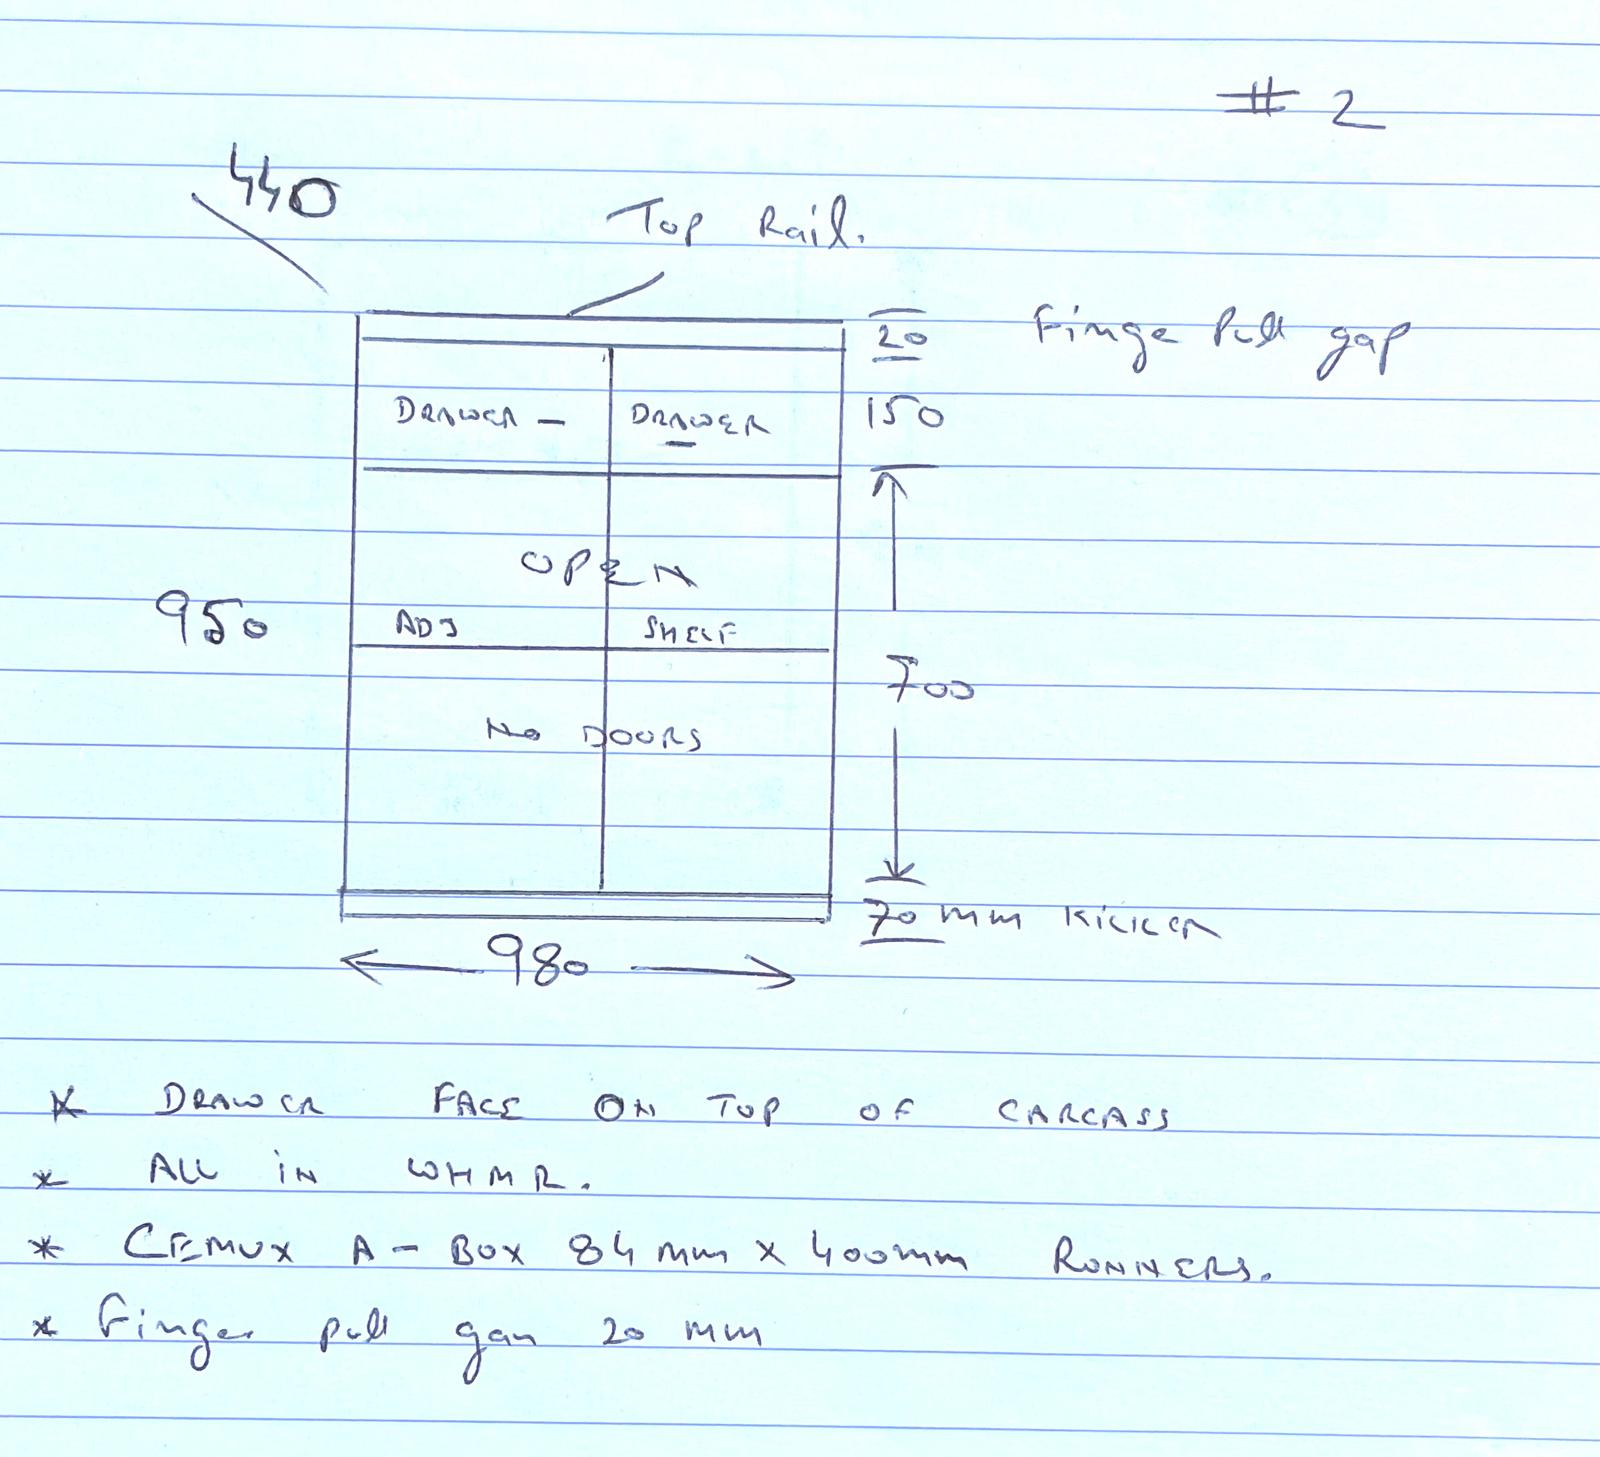 # 2
440
Top Rail.
20 Finge Pull gap
DRAWER - DRAWER 150
OPEN
950
ADJ SHELF
700
No DOORS
70 mm KICKER
980
* DRAWER FACE ON TOP OF CARCASS
* ALL IN WHMR.
* 84 mm x 400mm RUNNERS.
A - BOX
* Finger pull 20 mm